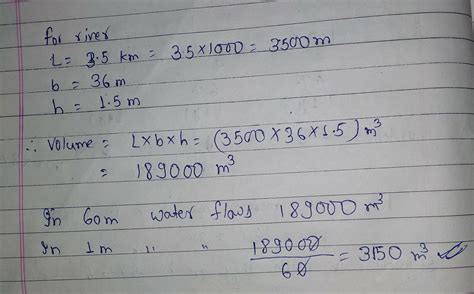 for river
L = 3.5 km = 3.5×1000 = 3500 m
b = 36 m
h = 1.5 m
∴ Volume = L×b×h = (3500×36×1.5) m³
= 189000 m³
In 60m water flows 189000 m³
In 1m " " 189000/60 = 3150 m³